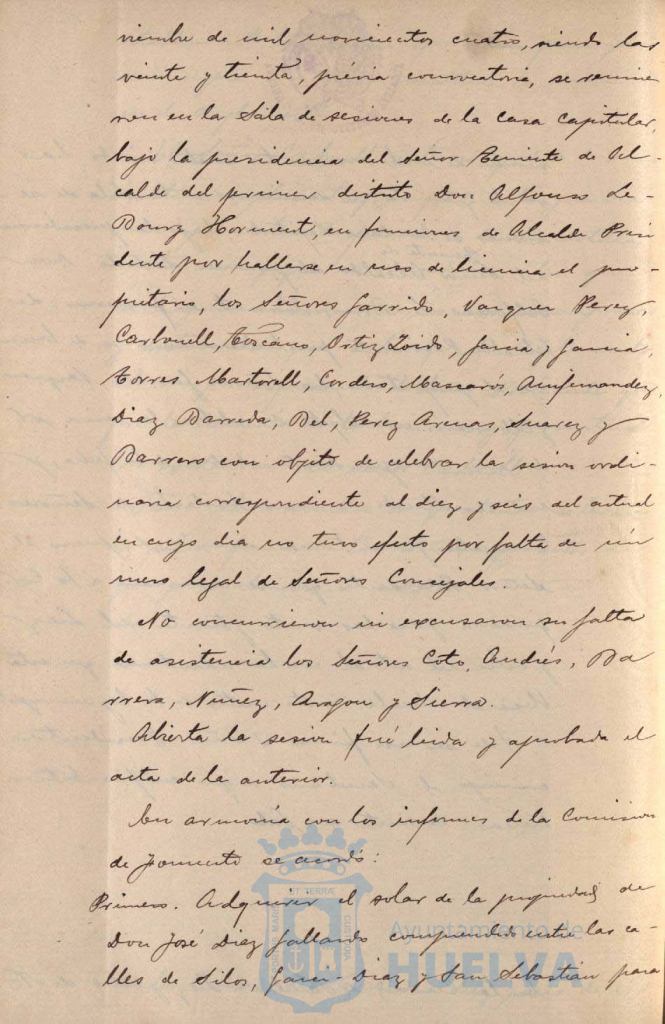 viembre de mil novecientos cuatro, siendo las
veinte y treinta, prévia convocatoria, se reunie
ron en la Sala de sesiones de la Casa Capitular,
bajo la presidencia del Señor Teniente de Al-
calde del primer distrito Don Alfonso Le-
Bourg Horment, en funciones de Alcalde Presi
dente por hallarse en uso de licencia el pro-
pietario, los Señores Garrido, Vazquez Perez,
Carbonell, Toscano, Ortiz Zoido, Garcia y Garcia,
Torres Martorell, Cordero, Mascarós,
Diaz Barreda, Bel, Perez Arenas, Suarez y
Barrero con objeto de celebrar la sesion ordi-
naria correspondiente al diez y seis del actual
en cuyo dia no tuvo efecto por falta de nú
mero legal de Señores Concejales.
No concurrieron ni excusaron su falta
de asistencia los Señores Coto, Andrés, Ba
rrera, Nuñez, Aragon y Sierra.
Abierta la sesion fué leida y aprobada el
acta de la anterior.
En armonía con los informes de la Comision
de Fomento se acordó:
Primero. Adquirir el solar de la propiedad de
Don José Diaz Gallardo comprendido entre las ca-
lles de Silos, Garci-Diaz y San Sebastian para
Ayuntamiento de
HUELVA